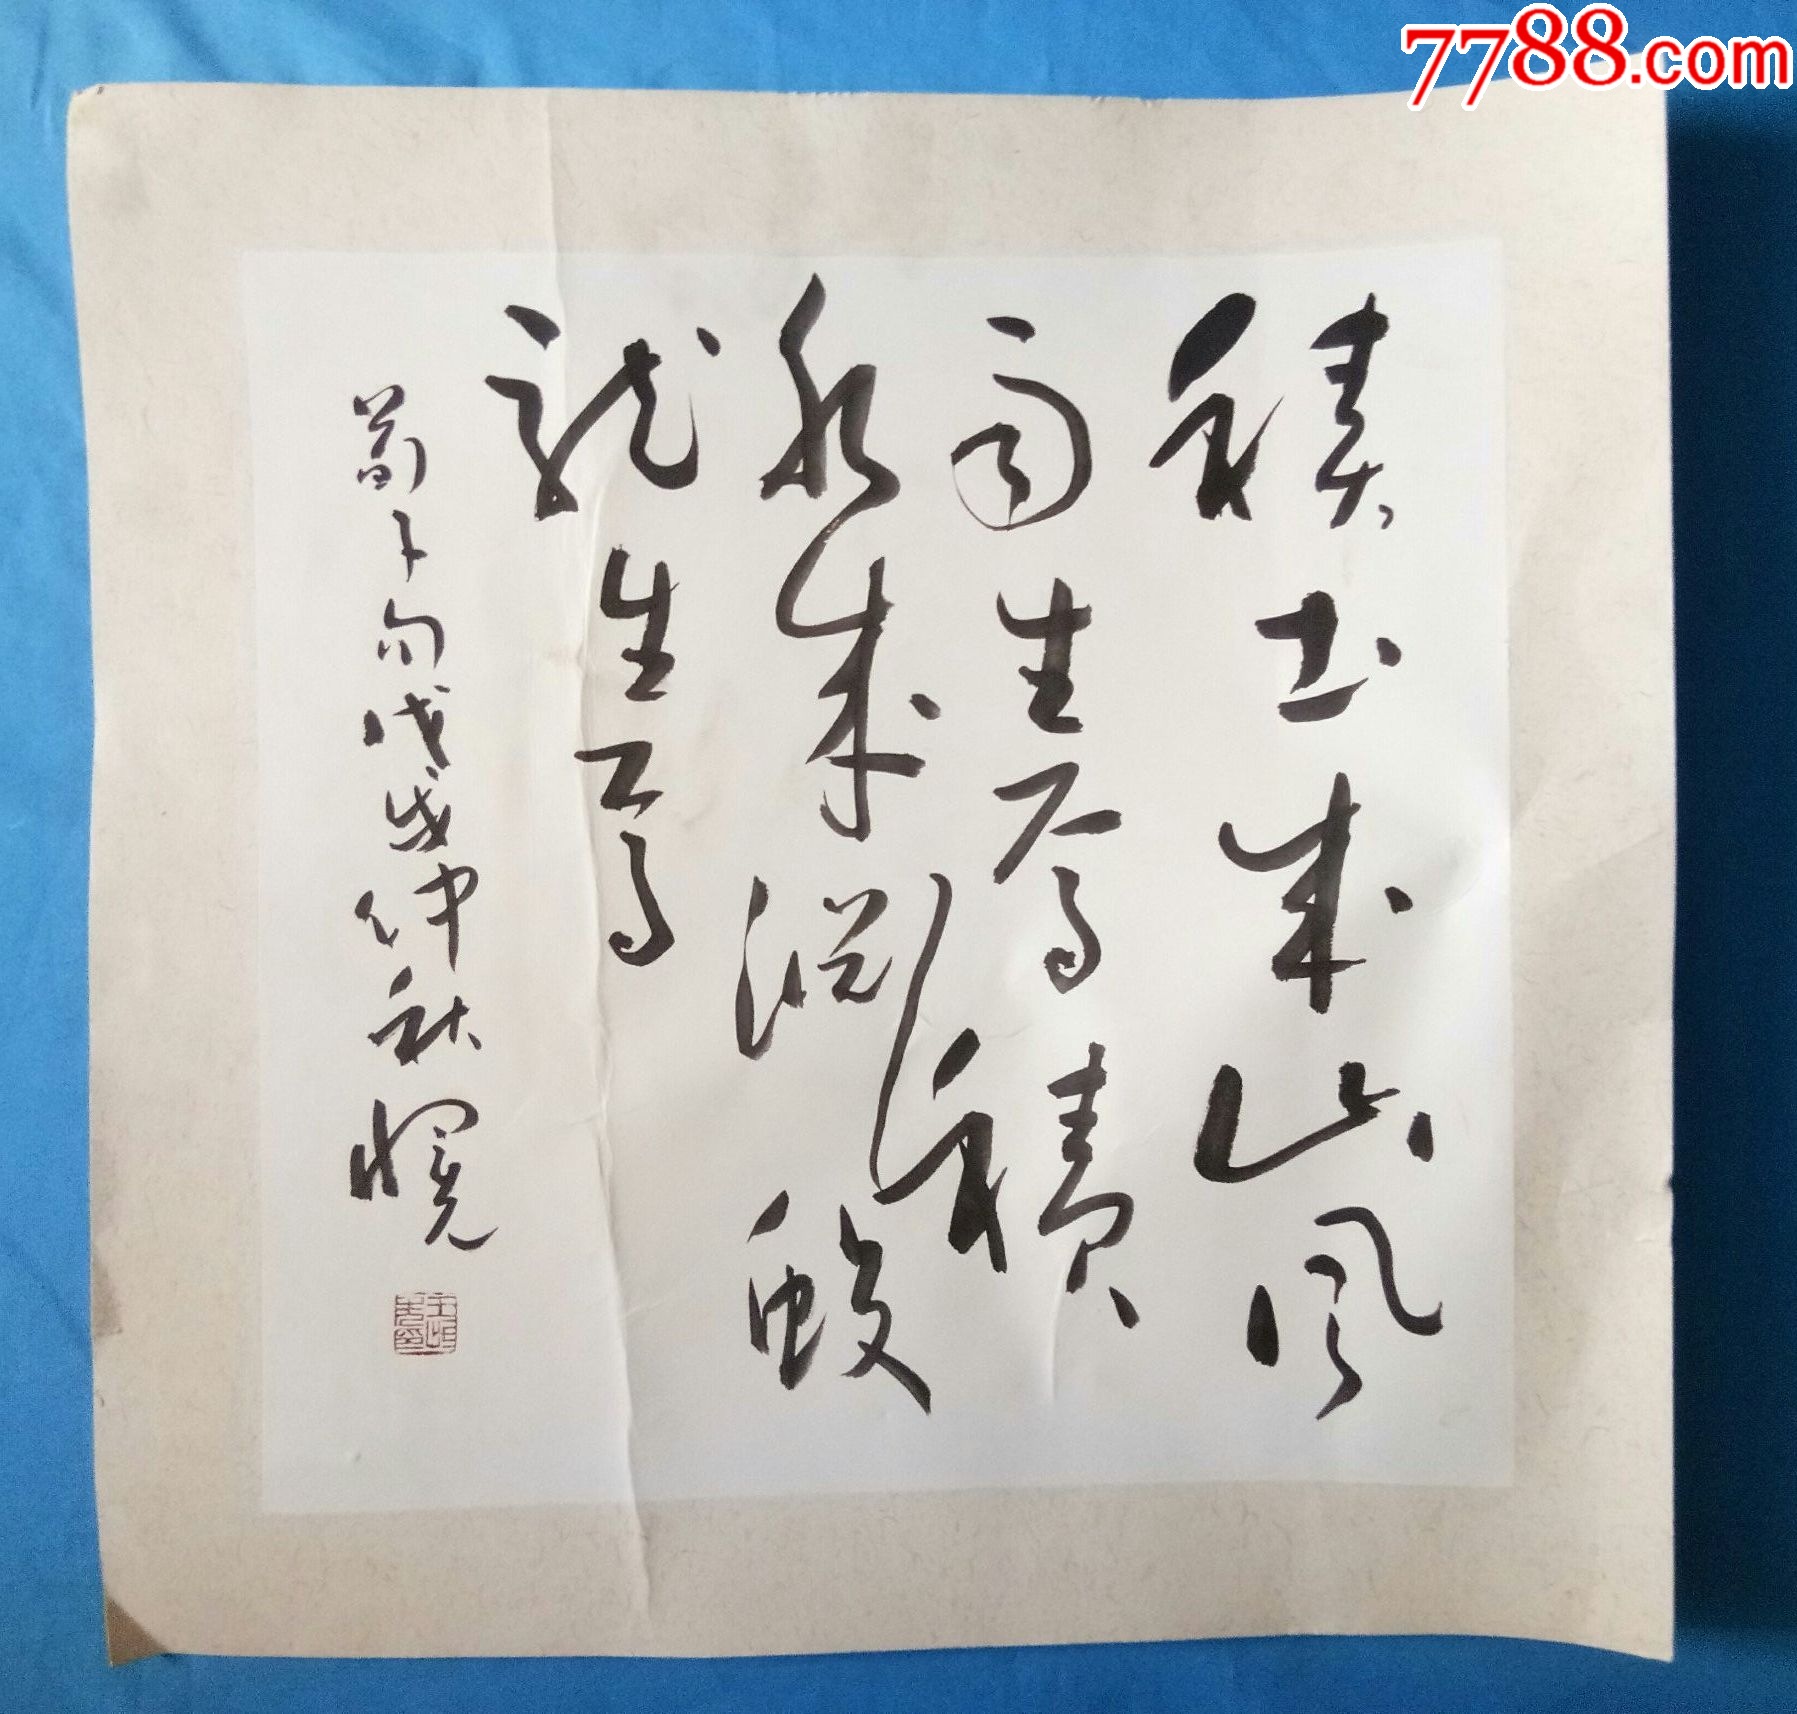 7788.com
積土成山風
雨生焉積
水成淵蛟
龍生焉
荀子句戊戌仲秋